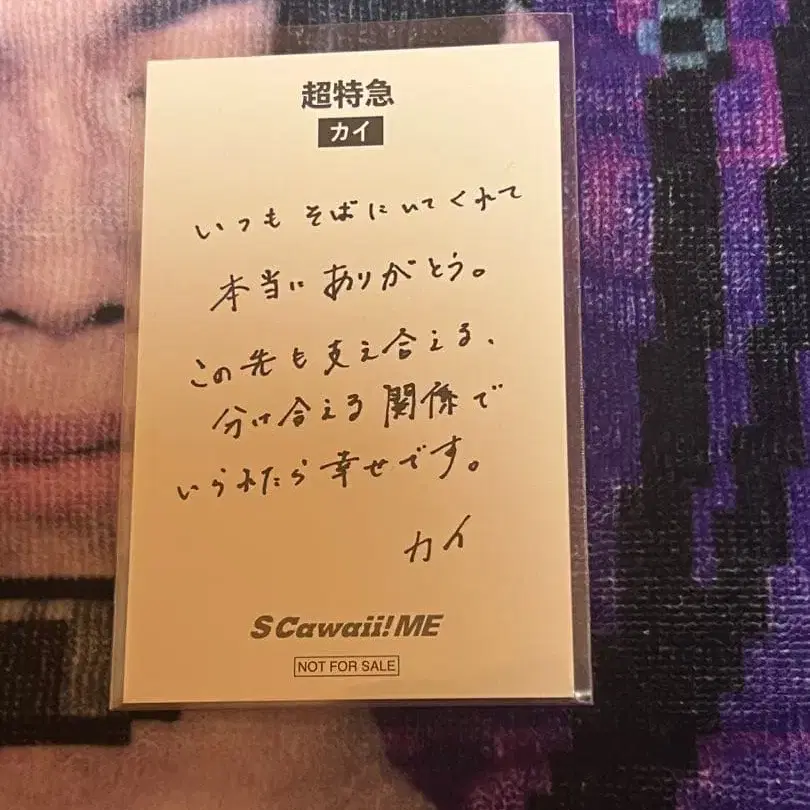 超特急
カイ
いつもそばにいてくれて
本当にありがとう。
この先も支え合える、
分け合える関係で
いられたら幸せです。
カイ
S Cawaii! ME
NOT FOR SALE